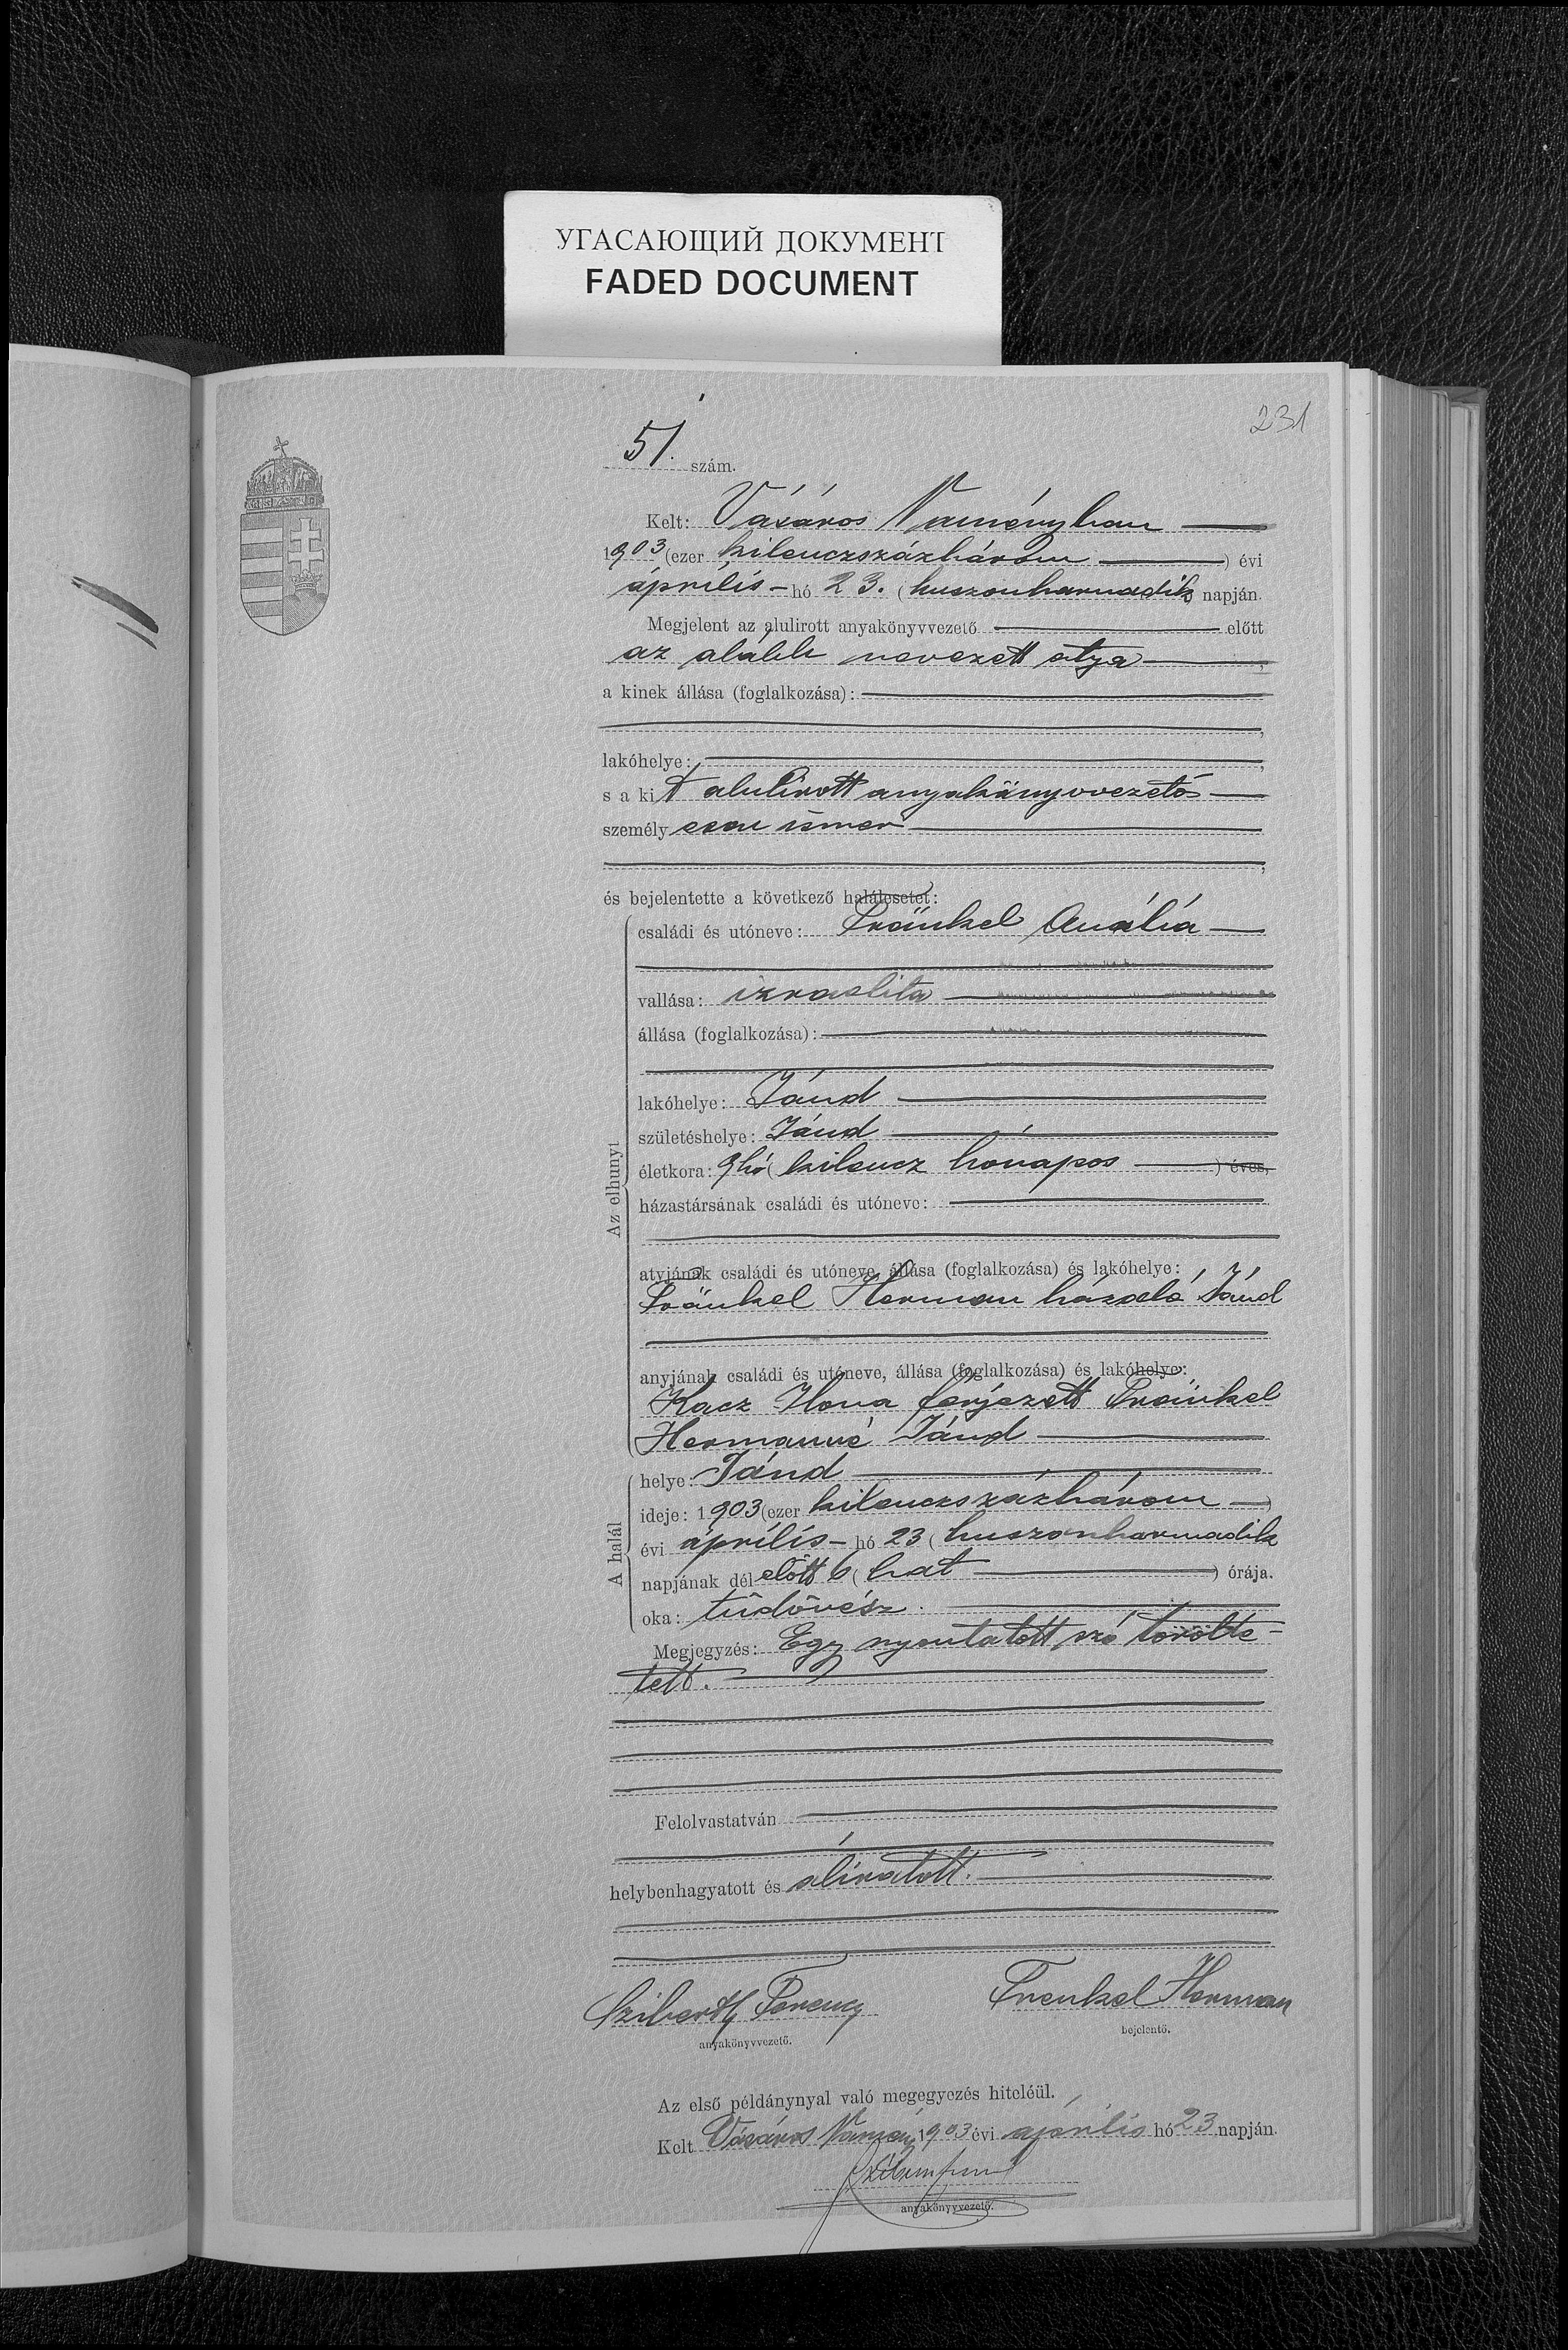 УГАСАЮЩИЙ ДОКУМЕНТ
FADED DOCUMENT
231
51. szám.
Kelt: Vásáros Naményban
1903 (ezer kilenczszázhárom ) évi
április - hó 23. (huszonharmadik napján.
Megjelent az alulirott anyakönyvvezető előtt
az alább nevezett atya ,
a kinek állása (foglalkozása):
,
lakóhelye: ,
s a kit alulírott anyakönyvvezető
személyesen ismer
,
és bejelentette a következő halálesetet:
családi és utóneve: Fränkel Amália
vallása: izraelita
állása (foglalkozása):
lakóhelye: Jánd
születéshelye: Jánd
Az elhunyt
életkora: 9 hó (kilencz hónapos ) éves,
házastársának családi és utóneve:
atyjának családi és utóneve, állása (foglalkozása) és lakóhelye:
Fränkel Herman házaló Jánd
anyjának családi és utóneve, állása (foglalkozása) és lakóhelye:
Kacz Ilona férjezett Fränkel
Hermanné Jánd
helye: Jánd
ideje: 1903 (ezer kilenczszázhárom )
A halál
évi április - hó 23 (huszonharmadik
napjának dél előtt 6 (hat ) órája.
oka: tüdővész.
Megjegyzés: Egy nyomtatott szó törölte-
tett.
Felolvastatván
helybenhagyatott és aláíratott.
Ferencz Frenkel Herman
anyakönyvvezető. bejelentő.
Az első példánynyal való megegyezés hiteléül.
Kelt Vásáros Namény 1903 évi április hó 23 napján.
anyakönyvvezető.